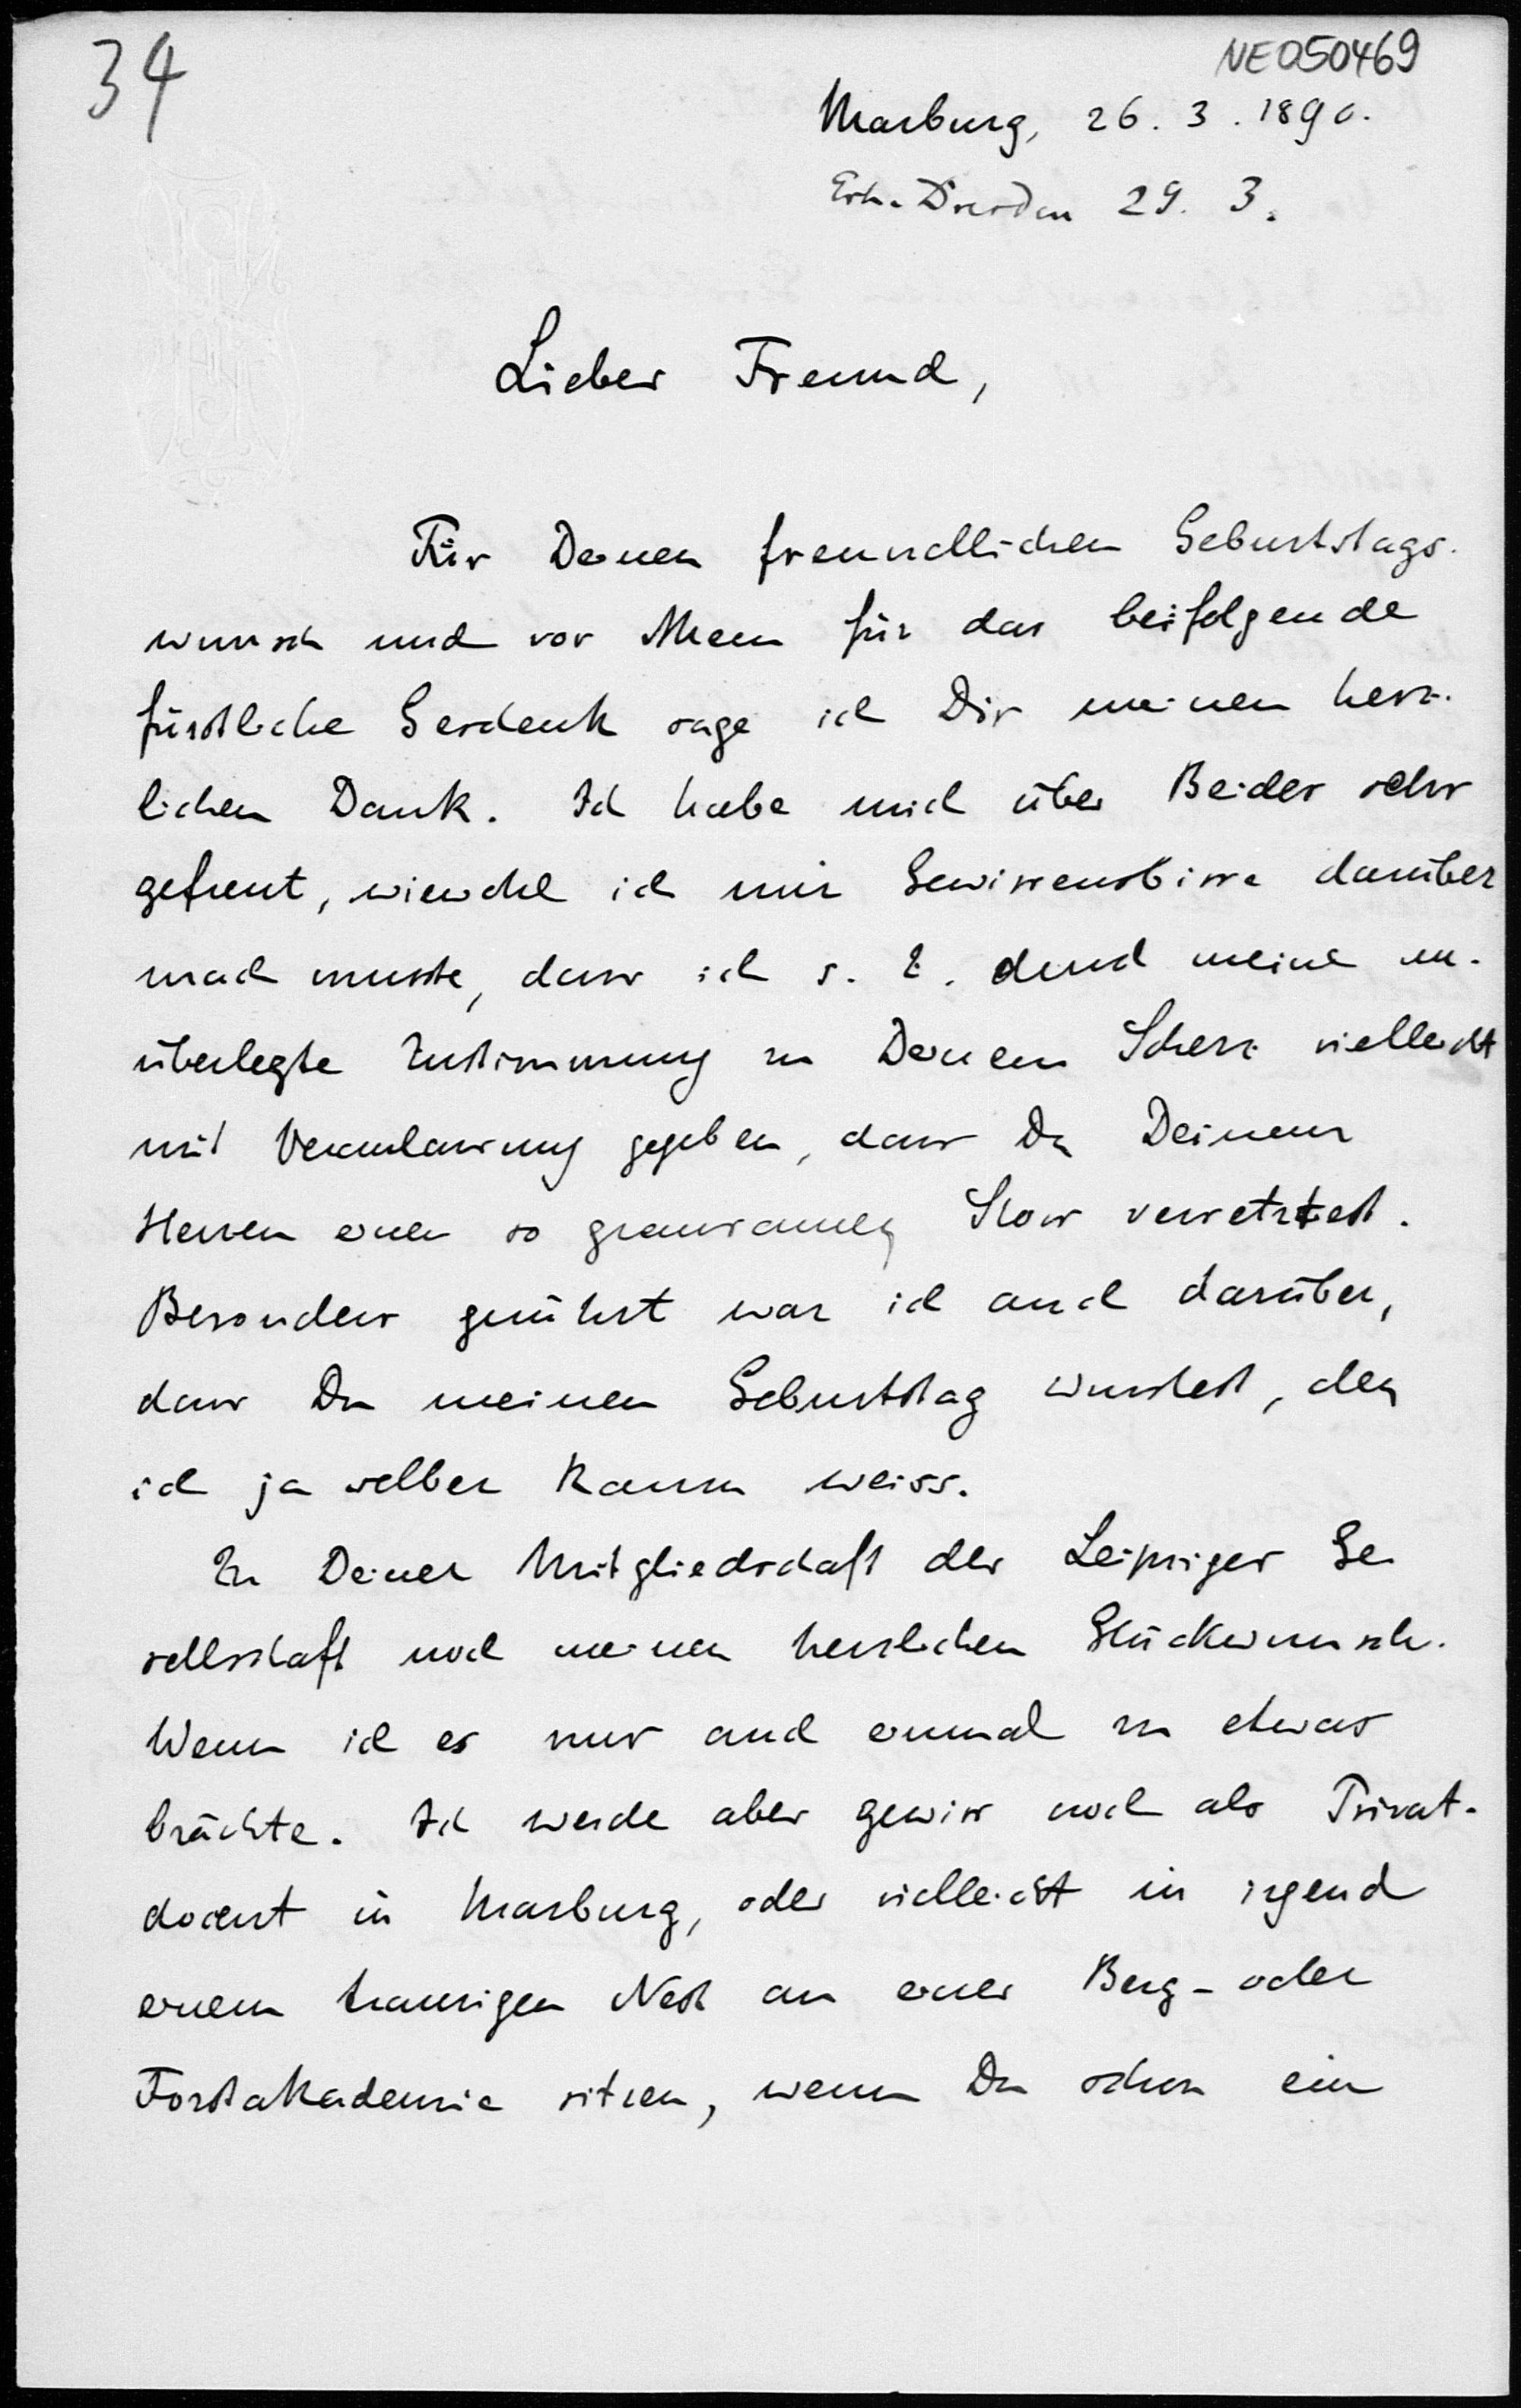 34
NE050469
Marburg, 26. 3. 1890.
Erh. Dresden 29. 3.
Lieber Freund,
Für Deinen freundlichen Geburtstags-
wunsch und vor Allem für das beifolgende
fürstliche Geschenk sage ich Dir meinen herz-
lichen Dank. Ich habe mich über Beides sehr
gefreut, wiewohl ich mir Gewissensbisse darüber
mach musste, dass ich s. Z. durch meine un-
überlegte Zustimmung zu Deinem Scherz vielleicht
mit Veranlassung gegeben, dass Du Deinem
Herzen einen so grausamen Stoss versetztest.
Besonders gerührt war ich auch darüber,
dass Du meinen Geburtstag wusstest, den
ich ja selber kaum weiss.
Zu Deiner Mitgliedschaft der Leipziger Ge
sellschaft noch meinen herzlichen Glückwunsch.
Wenn ich es nur auch einmal zu etwas
brächte. Ich werde aber gewiss noch als Privat-
docent in Marburg, oder vielleicht in irgend
einem traurigen Nest an einer Berg- oder
Forstakademie sitzen, wenn Du schon ein